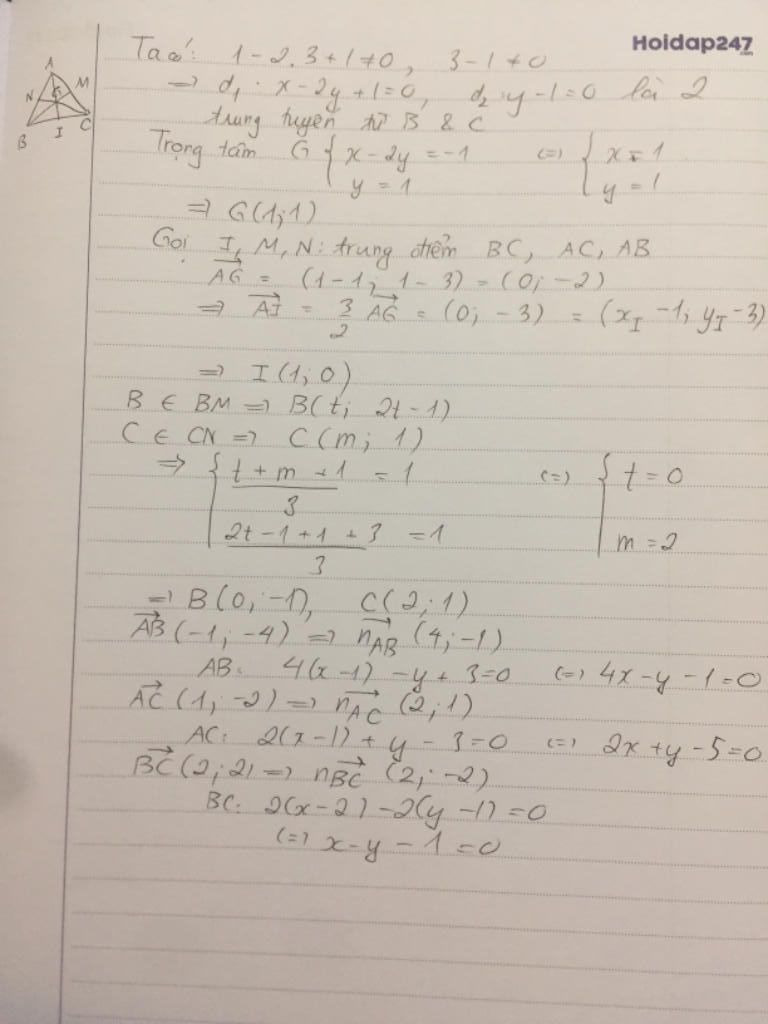 Hoidap247.com
Ta có: 1 - 2.3 + 1 ≠ 0, 3 - 1 ≠ 0
=> d₁: x - 2y + 1 = 0, d₂: y - 1 = 0 là 2
trung tuyến từ B & C
Trọng tâm G { x - 2y = -1 (=) { x = 1
y = 1 y = 1
=> G(1; 1)
Gọi I, M, N: trung điểm BC, AC, AB
AG→ = (1-1; 1-3) = (0; -2)
=> AI→ = 3/2 AG→ = (0; -3) = (x_I - 1; y_I - 3)
=> I(1; 0)
B ∈ BM => B(t; 2t - 1)
C ∈ CN => C(m; 1)
=> { (t + m + 1)/3 = 1 (=) { t = 0
(2t - 1 + 1 + 3)/3 = 1 m = 2
=> B(0; -1), C(2; 1)
AB→(-1; -4) => n_AB→(4; -1)
AB: 4(x - 1) - y + 3 = 0 (=) 4x - y - 1 = 0
AC→(1; -2) => n_AC→(2; 1)
AC: 2(x - 1) + y - 3 = 0 (=) 2x + y - 5 = 0
BC→(2; 2) => n_BC→(2; -2)
BC: 2(x - 2) - 2(y - 1) = 0
(=) x - y - 1 = 0
A
N M
G
B I C